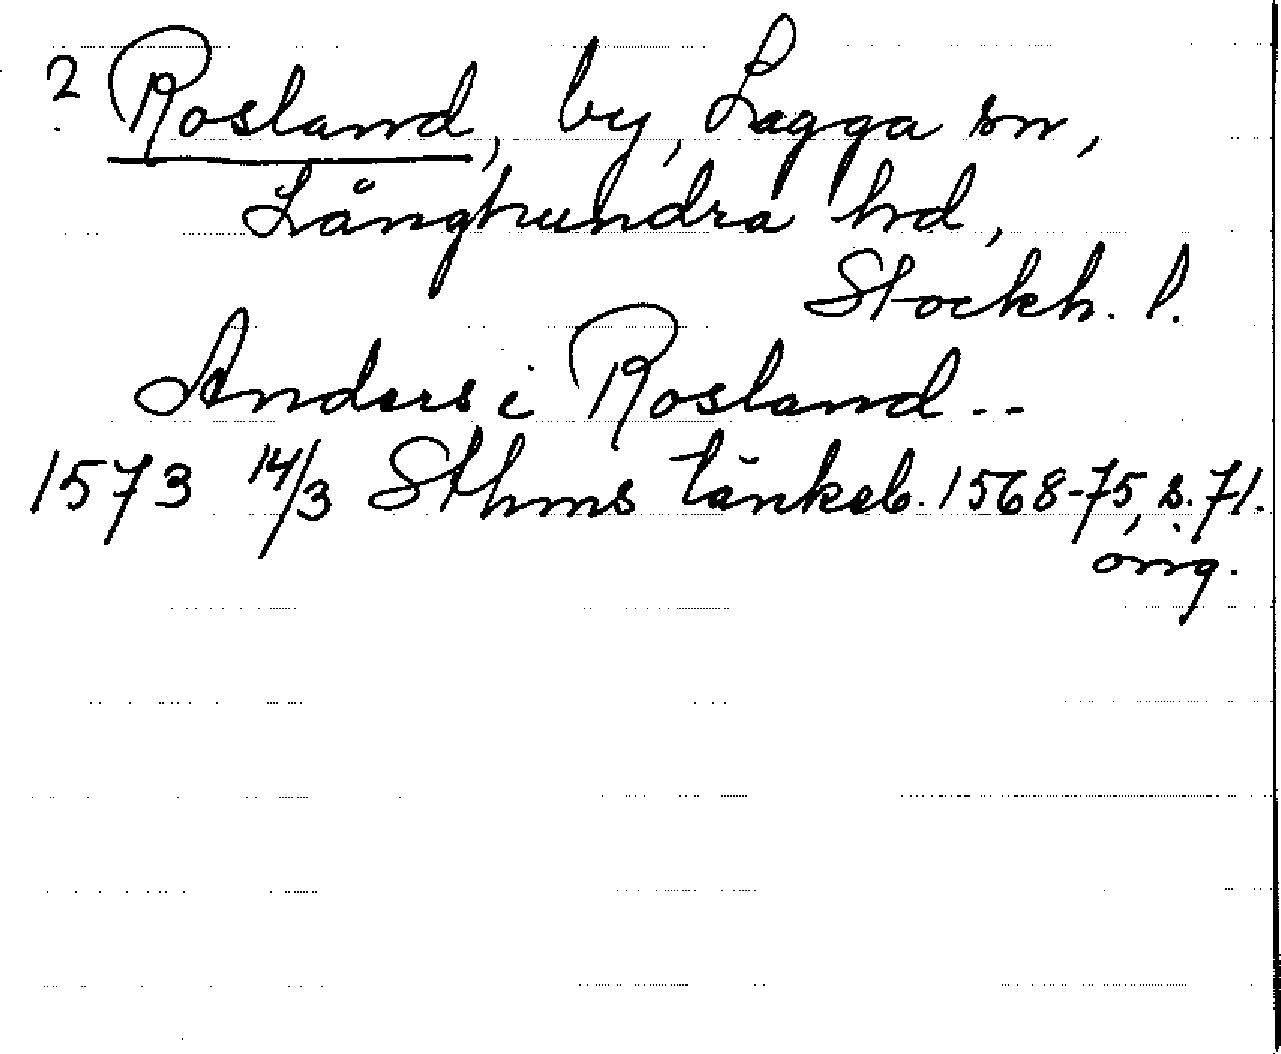 ? Rosland, by, Lagga sn,
Långhundra hd,
Stockh. l.
Anders i Rosland --
1573 14/3 Sthms tänkeb. 1568-75, s. 71.
orig.